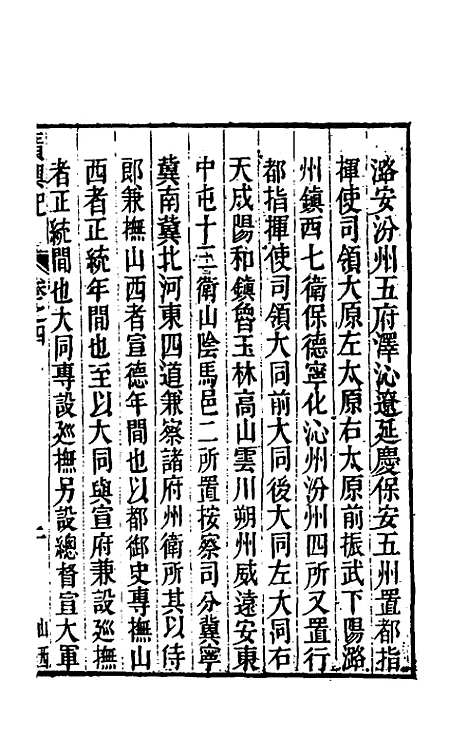 潞安汾州五府澤沁遼延慶保安五州置都指
揮使司領太原左太原右太原前振武下陽潞
州鎮西七衛保德寧化沁州汾州四所又置行
都指揮使司領大同前大同後大同左大同右
天成陽和鎮魯玉林高山雲川朔州威遠安東
中屯十三衛山陰馬邑二所置按察司分冀寧
冀南冀北河東四道兼察諸府州衛所其以侍
郎兼撫山西者宣德年間也以都御史專撫山
西者正統年間也至以大同與宣府兼設巡撫
者正統間也大同專設巡撫另設總督宣大軍
廣輿記 卷之四 山西